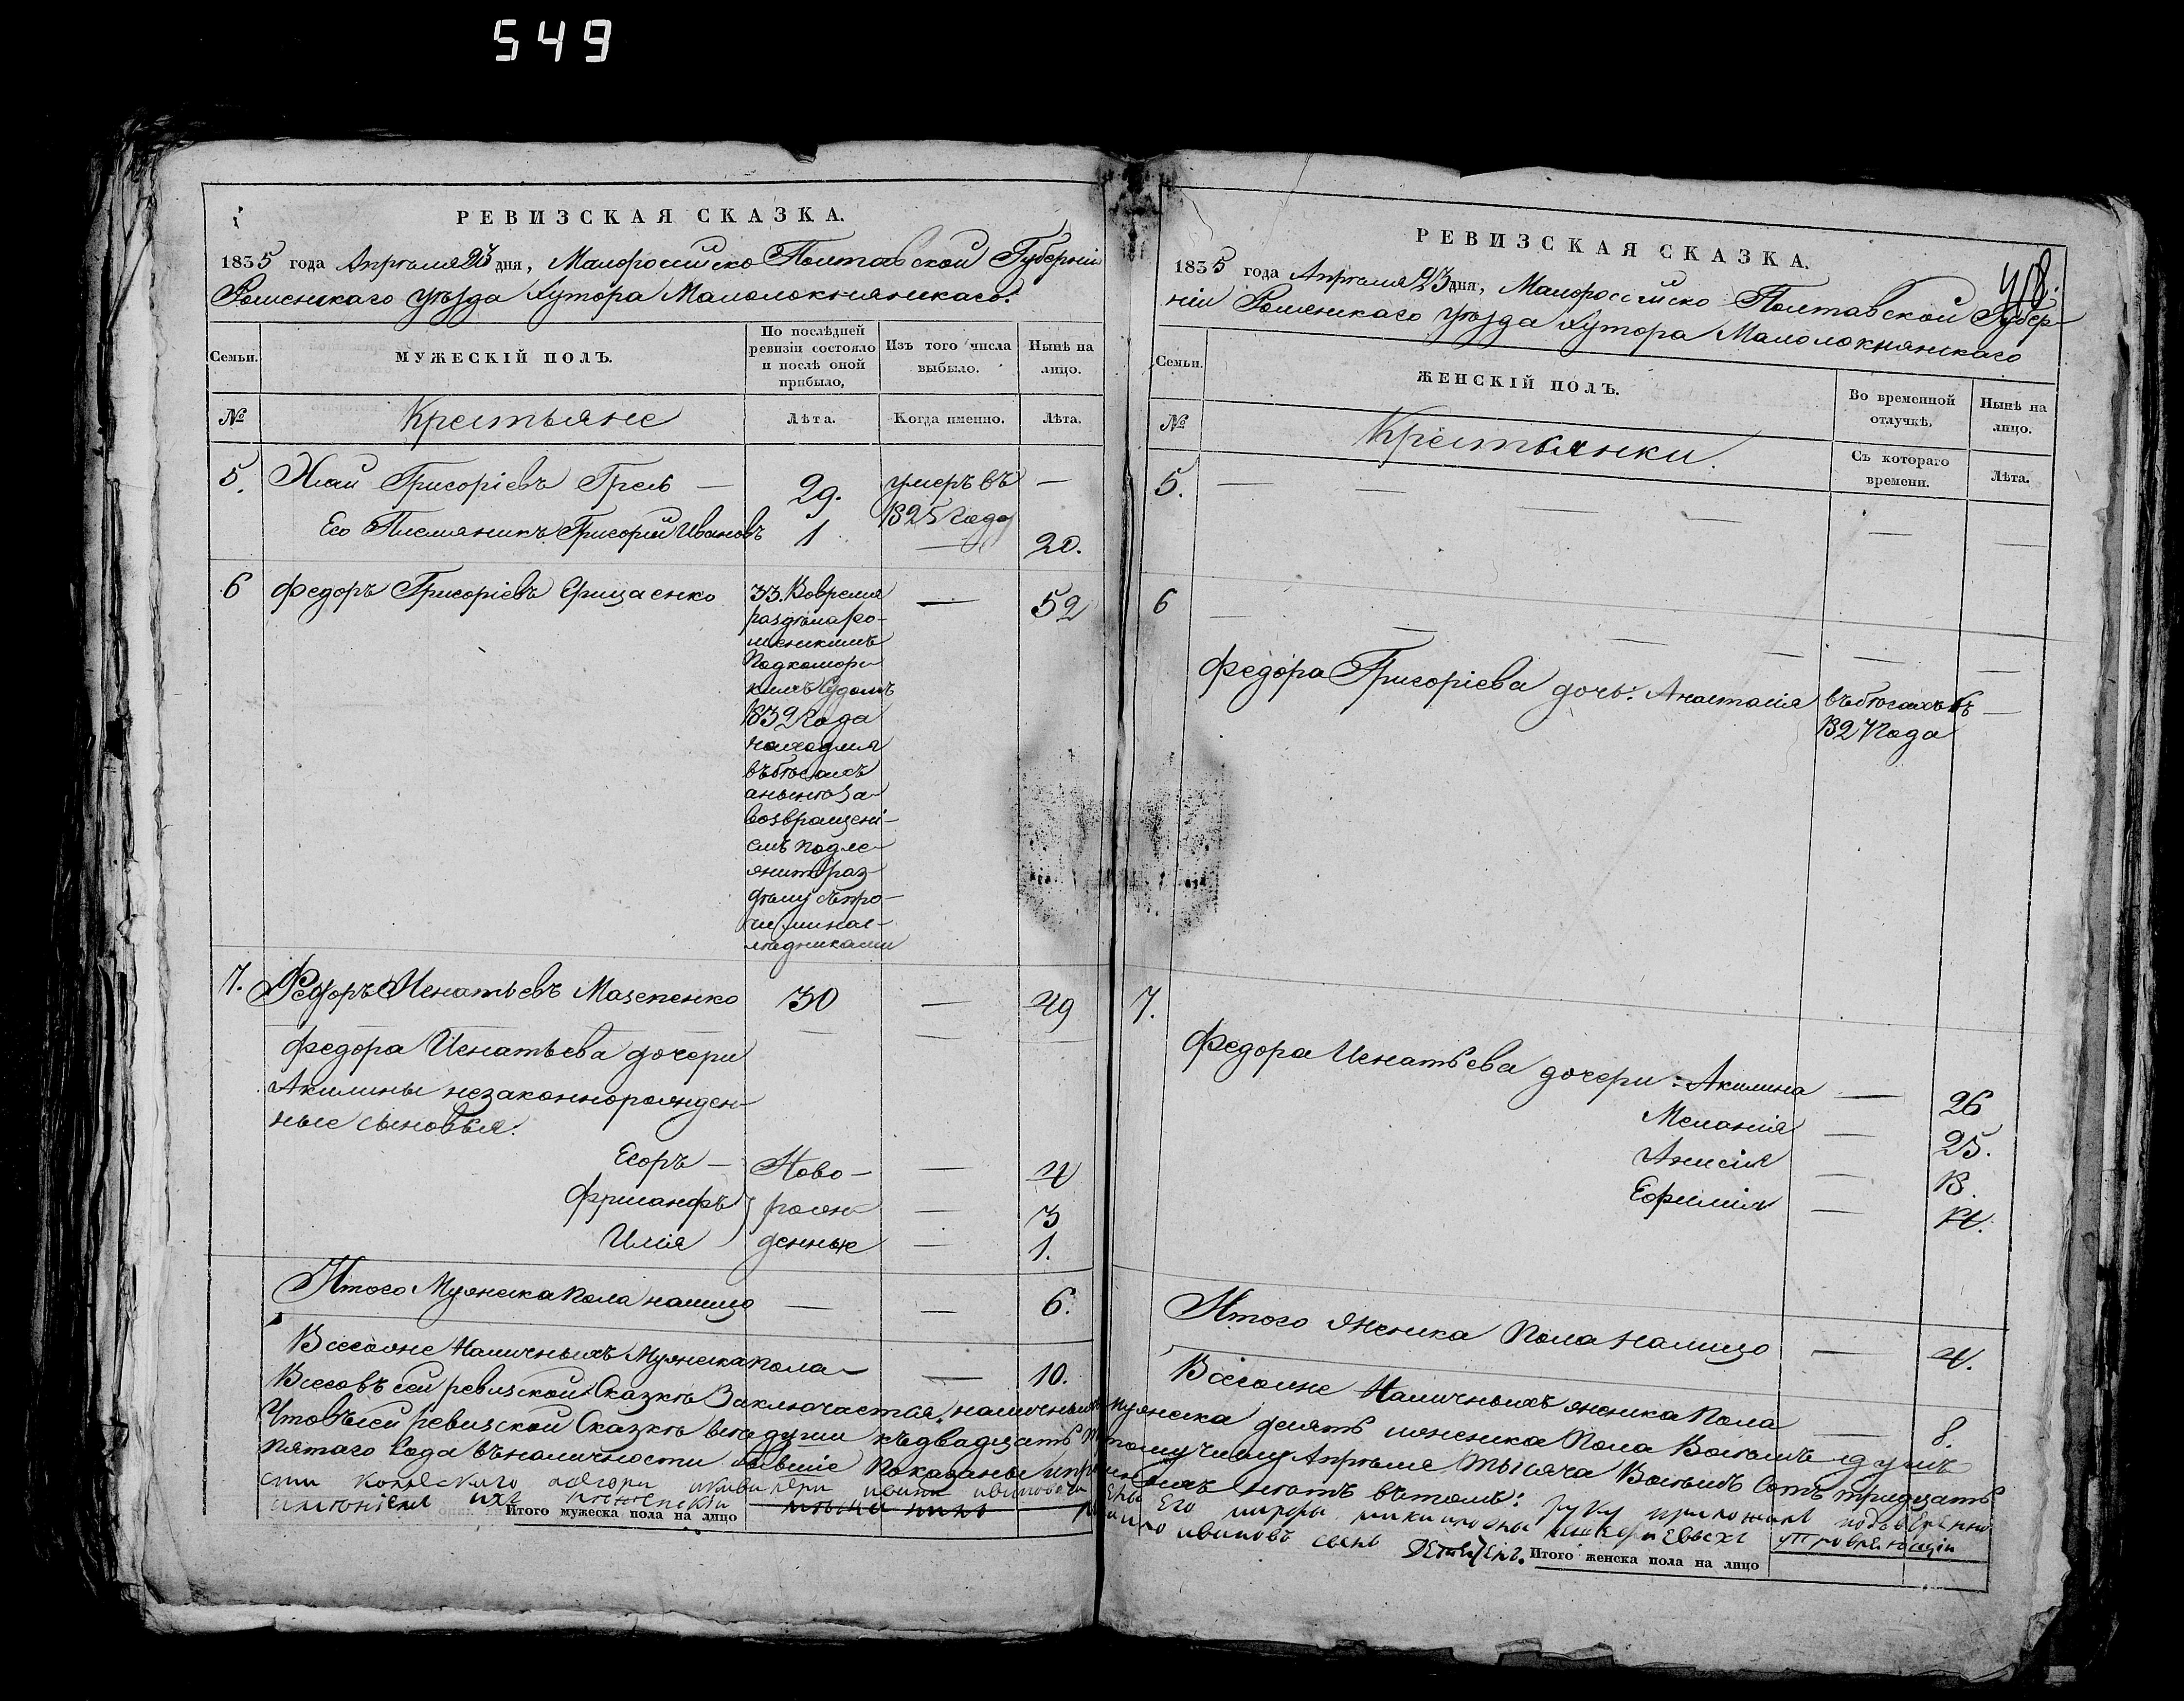 549
РЕВИЗСКАЯ СКАЗКА.
1835 года Апрѣля 23 дня, Малороссійско Полтавской Губерніи
Роменскаго уѣзда хутора Малолокнянскаго.
Семьи.
МУЖЕСКІЙ ПОЛЪ.
По послѣдней ревизіи состояло и послѣ оной прибыло.
Изъ того числа выбыло.
Нынѣ на лицо.
№
Крестьяне
Лѣта.
Когда именно.
Лѣта.
5. Григоріевъ — 29. умеръ въ 1825 года —
Его Племяникъ Григорій Ивановъ 1 — 20.
6 Федоръ Григоріевъ Грицаенко 33. Вовремя — 52
раздѣла Ро-
менскимъ
Подкомор-
кимъ Судомъ
1832 Года
находился
въ бѣгахъ
а нынѣ за
возвращені-
емъ подле-
житъ раз-
дѣлу съ про-
чими нас-
лѣдниками
7. Федоръ Игнатьевъ Мазепенко 30 — 49
Федора Игнатьева дочери
Акилины незаконнорожден-
ные сыновья.
Егоръ — Ново- — 4
рожд- — 3
Илія денные — 1.
Итого Мужеска Пола налицо — — 6.
Всего же Наличныхъ Мужеска пола — — 10.
РЕВИЗСКАЯ СКАЗКА.
418.
1835 года Апрѣля 23 дня, Малороссійско Полтавской Губер-
ніи Роменскаго уѣзда хутора Малолокнянскаго
Семьи.
ЖЕНСКІЙ ПОЛЪ.
Во временной отлучкѣ.
Нынѣ на лицо.
№
Крестьянки.
Съ котораго времени.
Лѣта.
5. — — — — — —
6 — — — — —
Федора Григоріева дочь: Анастасія въ бѣгахъ съ —
1827 Года
7.
Федора Игнатьева дочери: Акилина — 26
Меланія — 25.
Анисія — 18.
Ефимія — 14.
Итого Женска Пола налицо — 4.
Всего же Наличныхъ женска Пола — 8.
Всего въ сей ревизской Сказкѣ Заключается наличныхъ мужеска десять женска Пола Восемь душъ
Что въ сей ревизской Сказкѣ всѣ души къ двадцать пятому числу Апрѣля тысяча Восемь Сотъ тридцать
пятаго Года въ наличности бывшіе показаны и про нихъ нѣтъ въ томъ: руку приложилъ
Итого мужеска пола на лицо
Итого женска пола на лицо